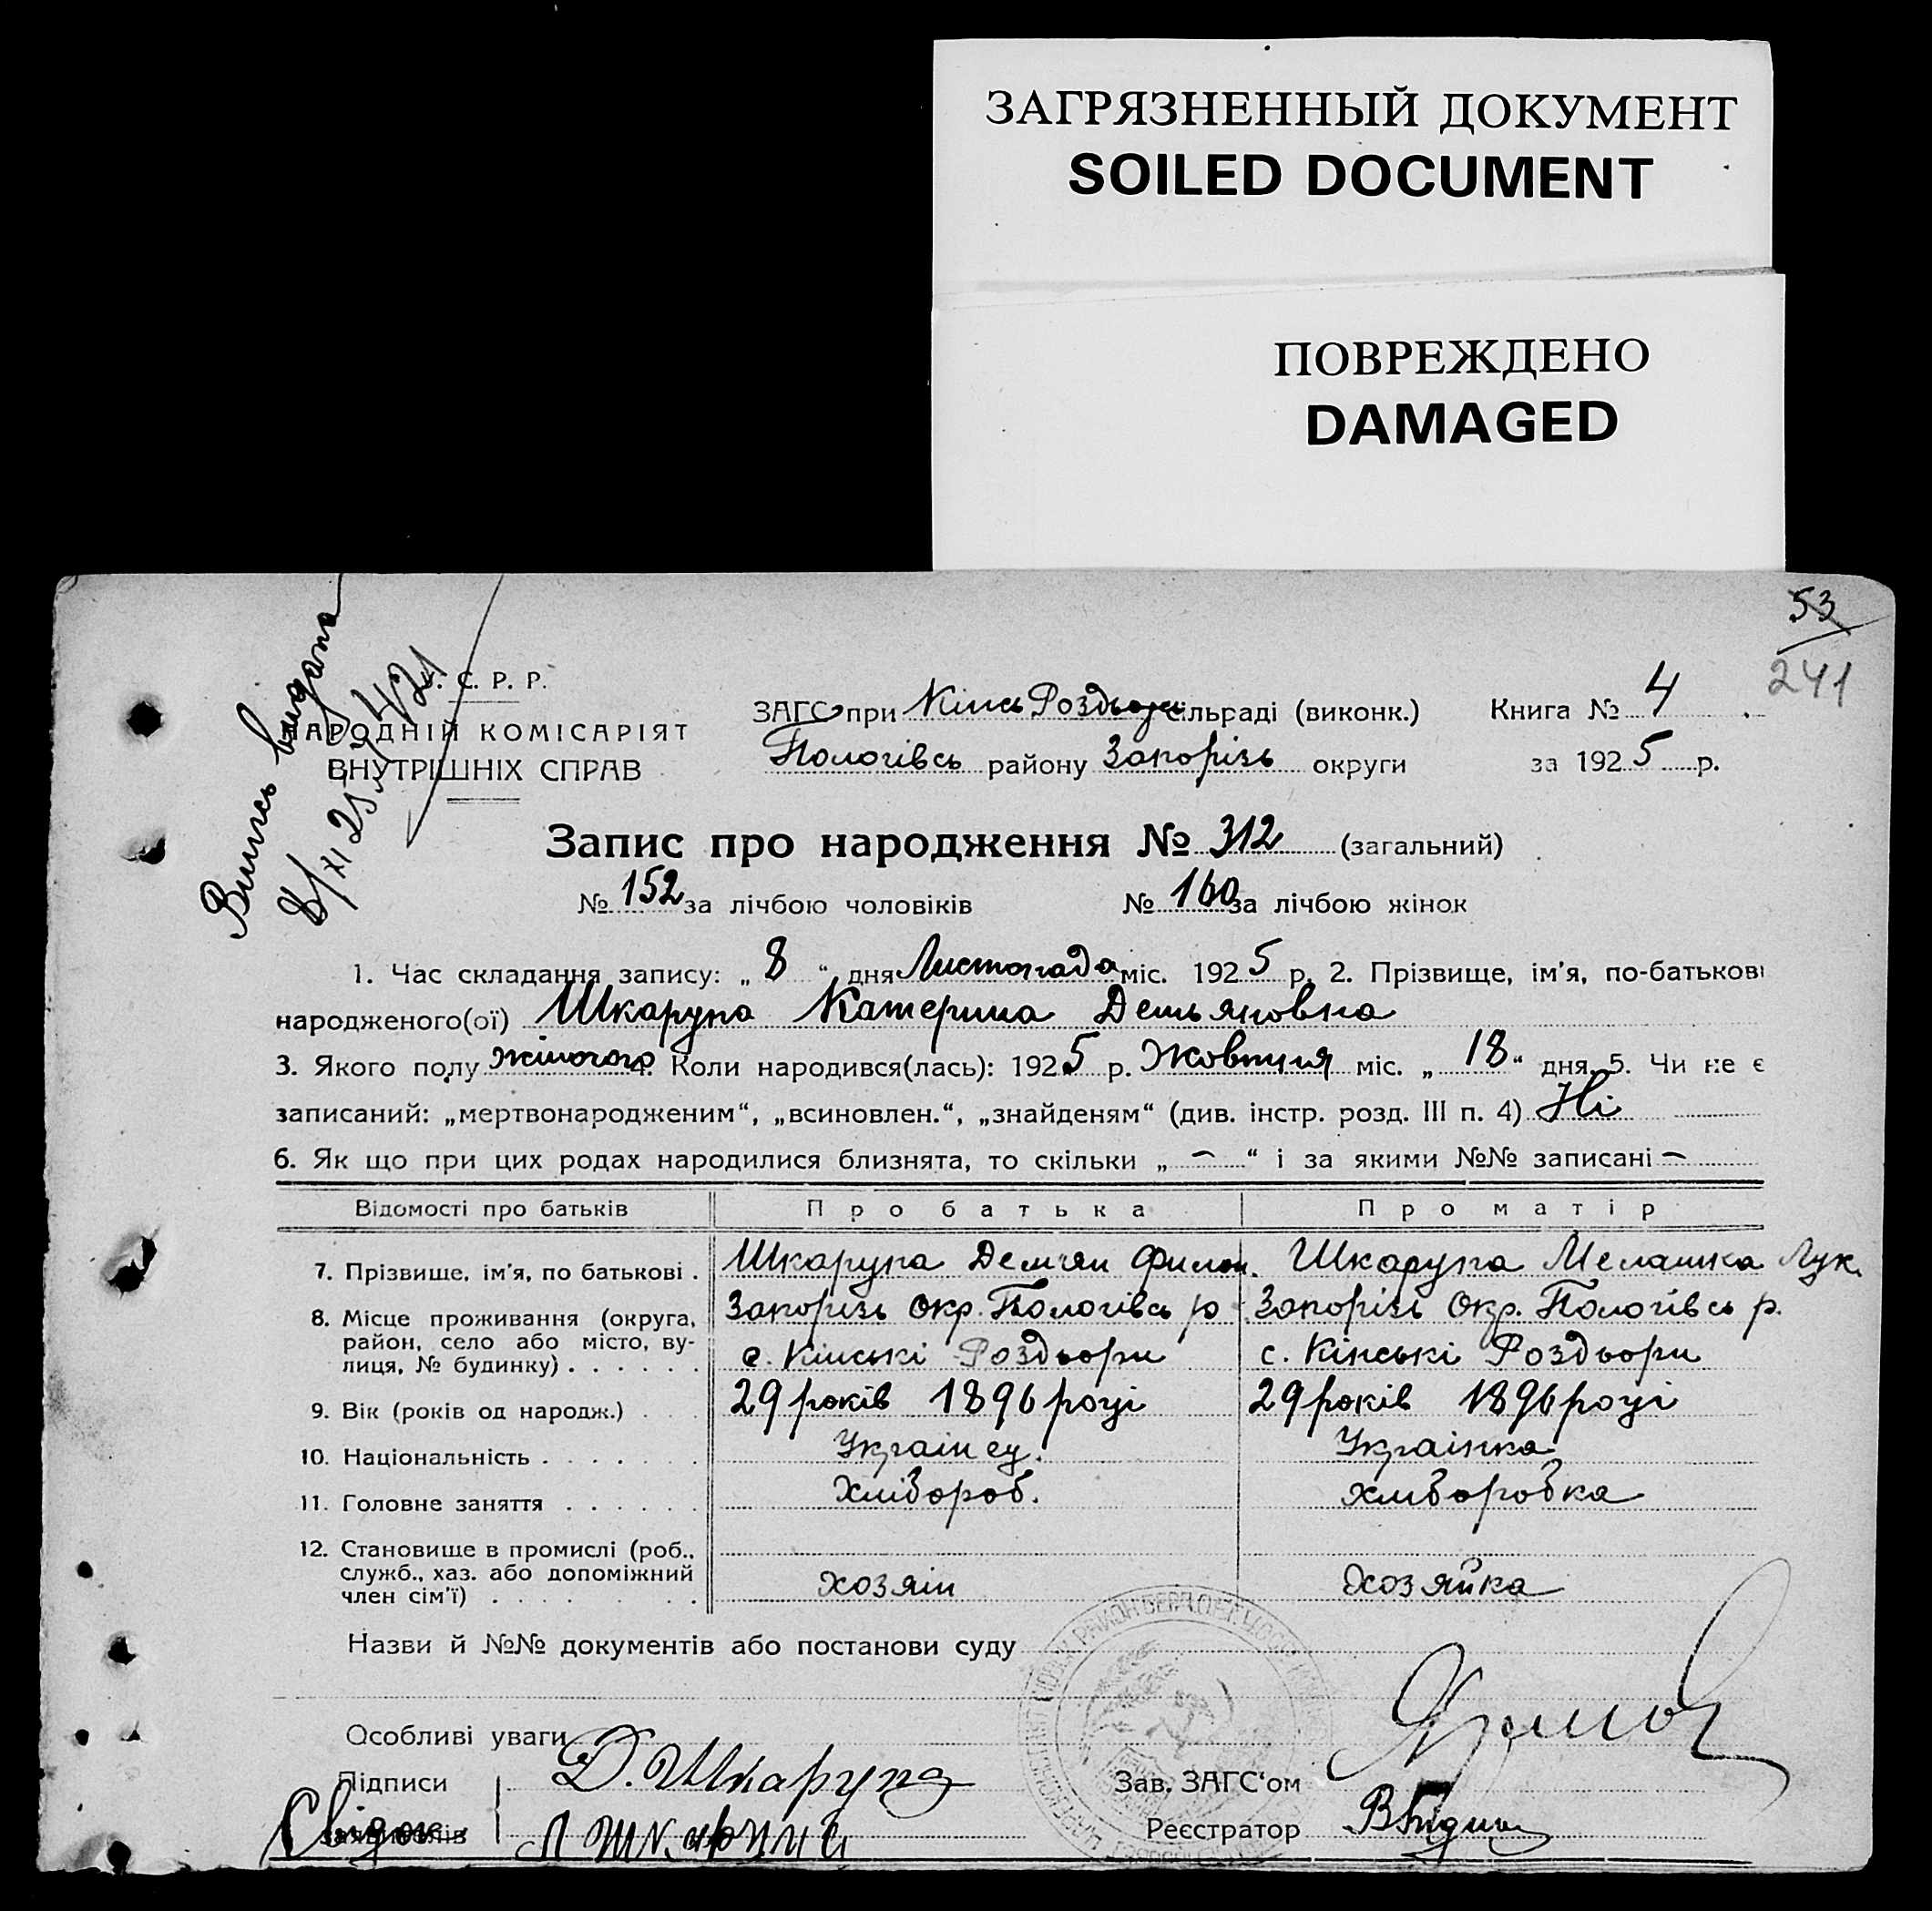 ЗАГРЯЗНЕННЫЙ ДОКУМЕНТ
SOILED DOCUMENT
ПОВРЕЖДЕНО
DAMAGED
53
241
Випись видана
8/XI 25
С. Р. Р.
НАРОДНІЙ КОМІСАРІЯТ
ВНУТРІШНІХ СПРАВ
ЗАГС при Кінсь Роздорс сільраді (виконк.) Книга № 4
Пологівсь району Запорізь округи за 1925 р.
Запис про народження № 312 (загальний)
№ 152 за лічбою чоловіків № 160 за лічбою жінок
1. Час складання запису: „ 8 “ дня Листопада міс. 1925 р. 2. Прізвище, ім'я, по-батькові
народженого(ої) Шкарупа Катерина Демьяновна
3. Якого полу жіночого 4. Коли народився(лась): 1925 р. Жовтня міс. „ 18 “ дня. 5. Чи не є
записаний: „мертвонародженим“, „всиновлен.“, „знайденям“ (див. інстр. розд. III п. 4) Ні
6. Як що при цих родах народилися близнята, то скільки „ — “ і за якими №№ записані —
Відомості про батьків Про батька Про матір
7. Прізвище, ім'я, по батькові . Шкарупа Демян Филон. Шкарупа Мелашка Лук.
8. Місце проживання (округа, район, село або місто, вулиця, № будинку) . . . . . . Запорізь Окр. Пологівсь р Запорізь Окр. Пологівсь р.
с. Кінські Роздори с. Кінські Роздори
9. Вік (років од народж.) . . . 29 років 1896 році 29 років 1896 році
10. Національність . . . . . . . Украінец. Украінка
11. Головне заняття . . . . . . Хлібороб. хлиборобка
12. Становище в промислі (роб., служб., хаз. або допоміжний член сім'ї) . . . . . . . хозяін хозяйка
Назви й №№ документів або постанови суду
Особливі уваги
Підписи Д. Шкарупа Зав. ЗАГС'ом
заявителів Реєстратор